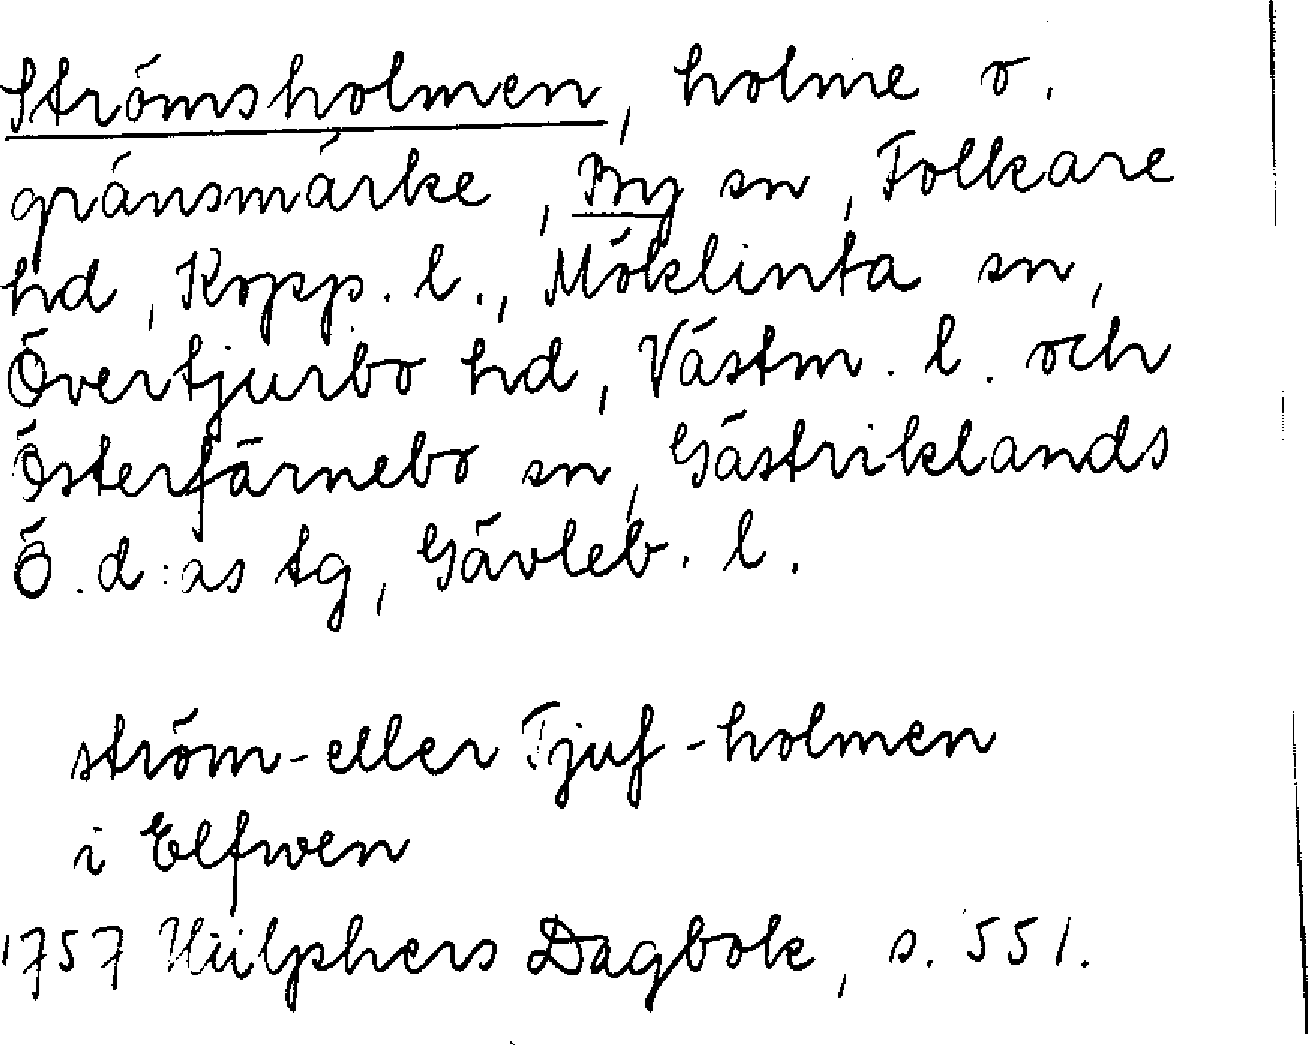 Strömsholmen, holme o.
gränsmärke, By sn, Folkare
hd, Kopp. l., Möklinta sn,
Övertjurbo hd, Västm. l. och
Österfärnebo sn, Gästriklands
Ö. d:as tg, Gävleb. l.
ström- eller Tjuf-holmen
i Elfwen
1757 Hülphers Dagbok, s. 551.